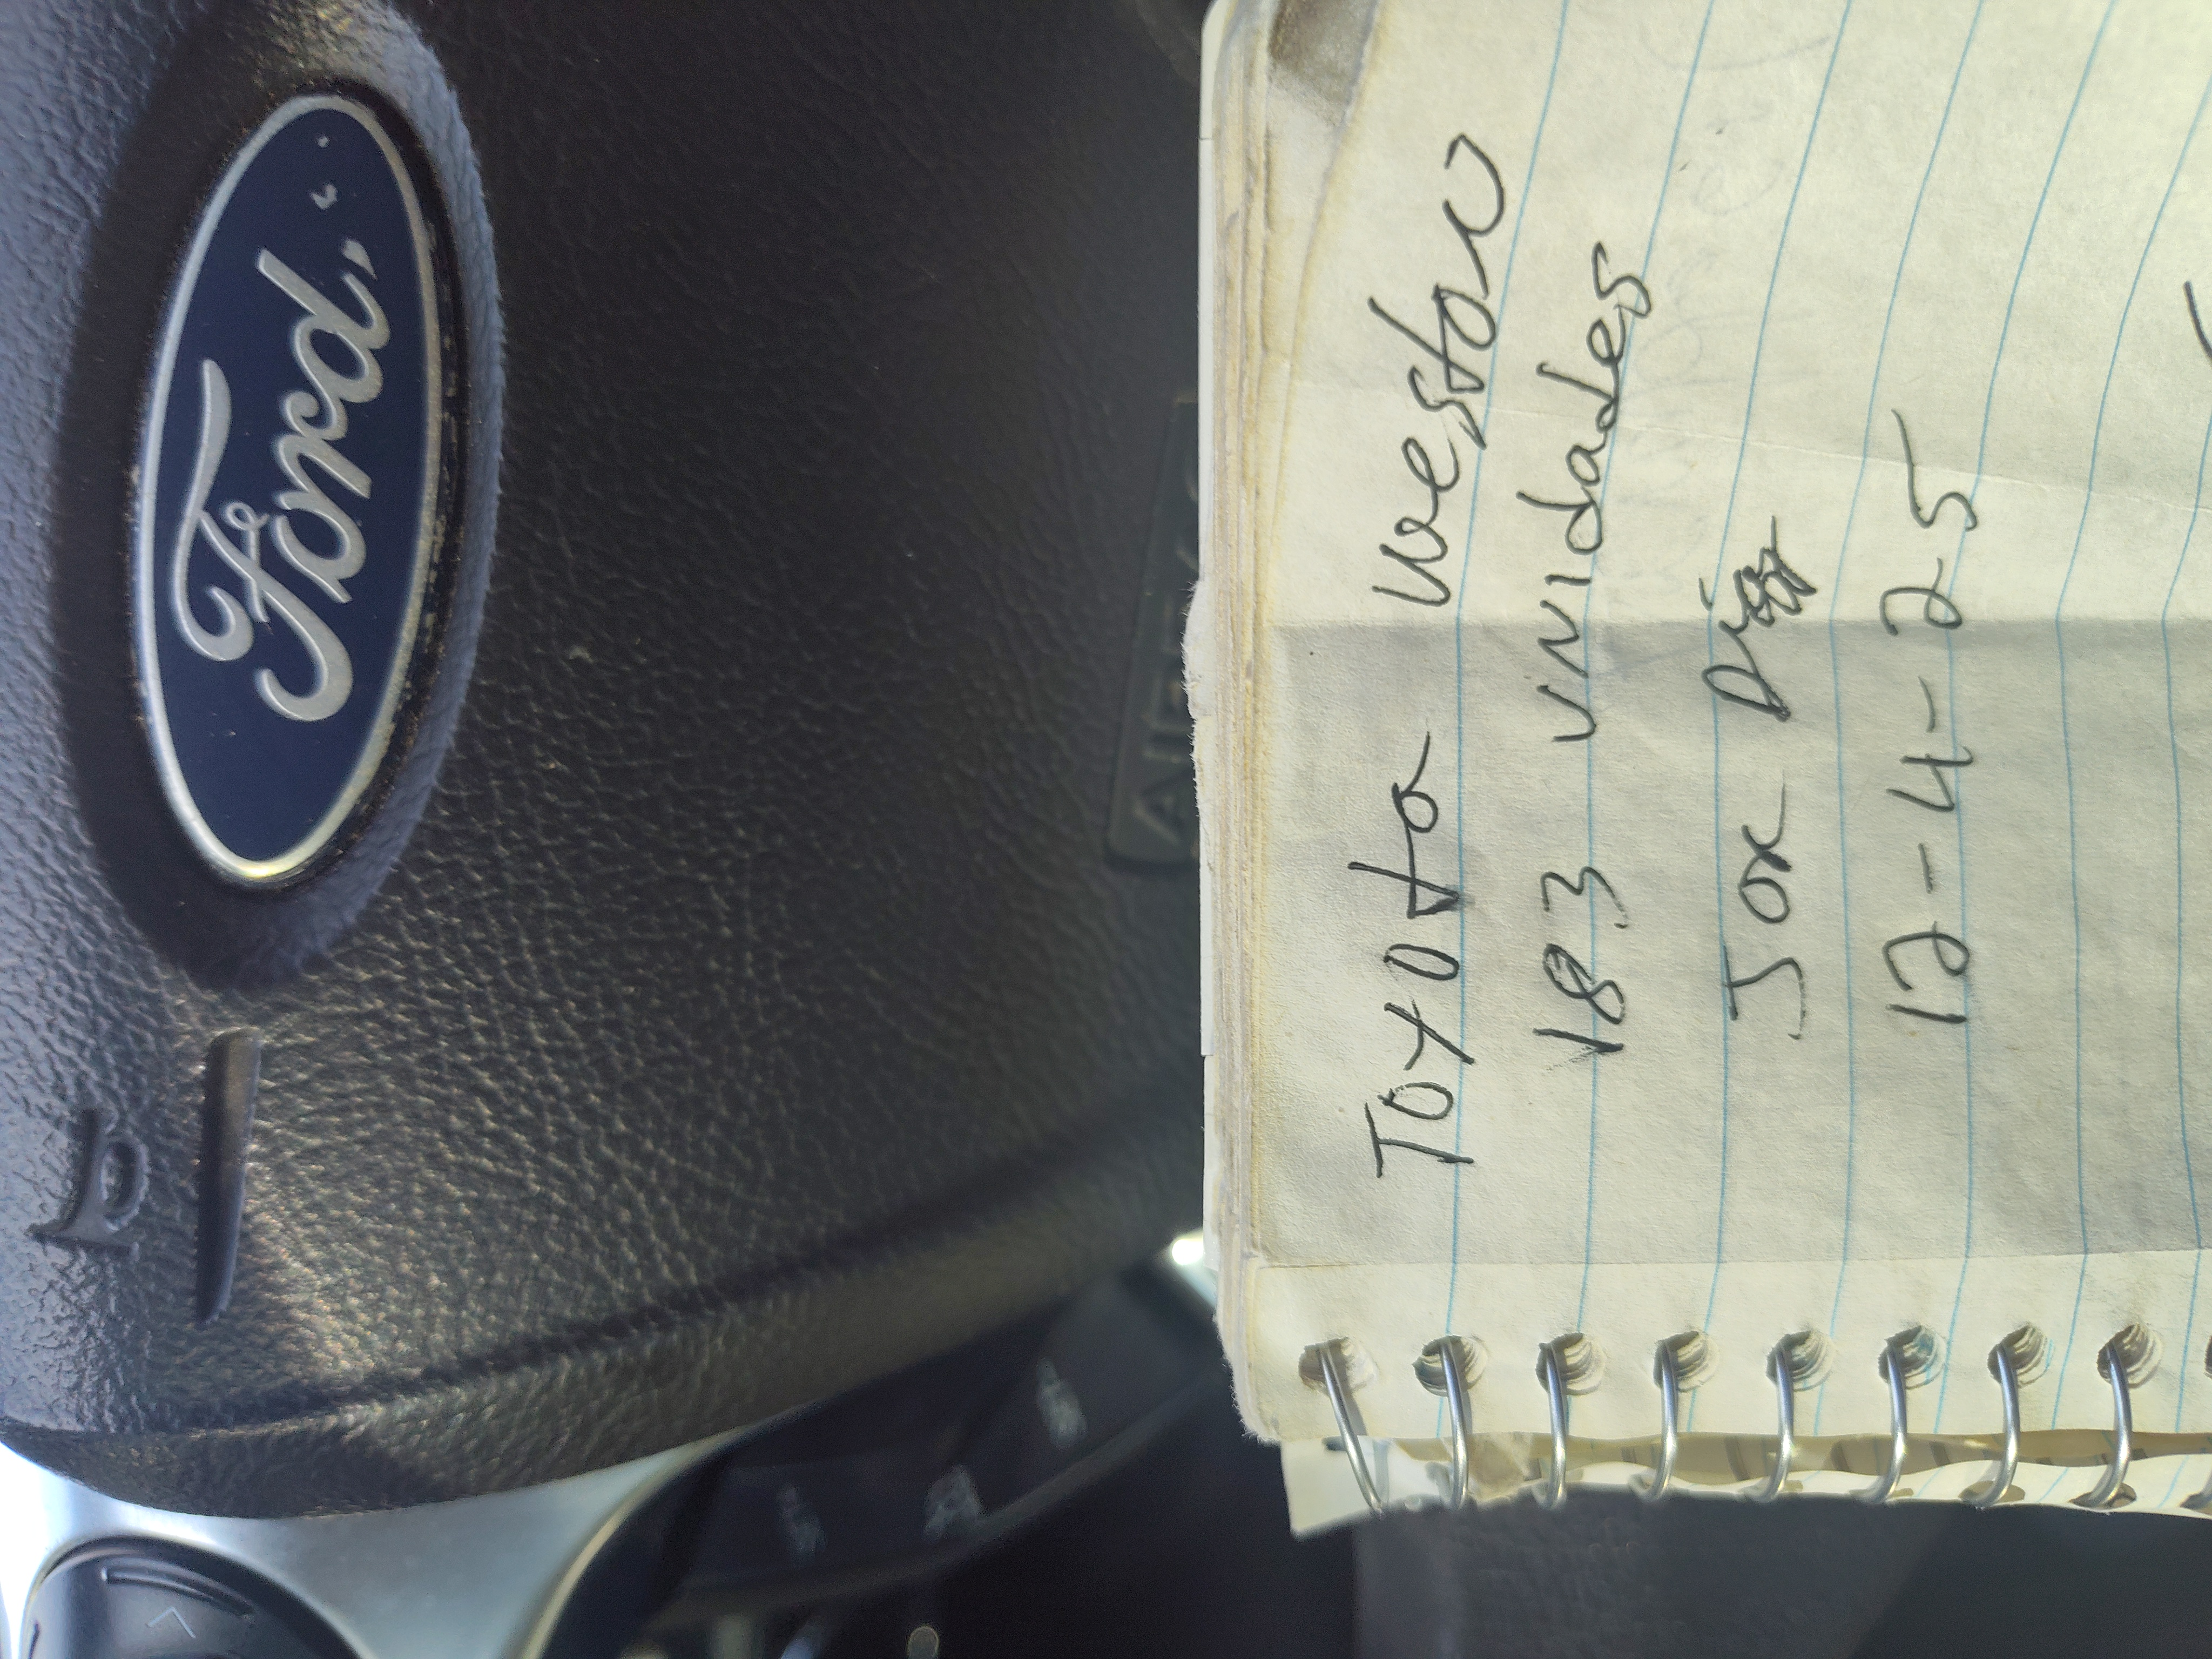 Ford
Toyota Weston
183 unidades
Jor Dias
12-4-25